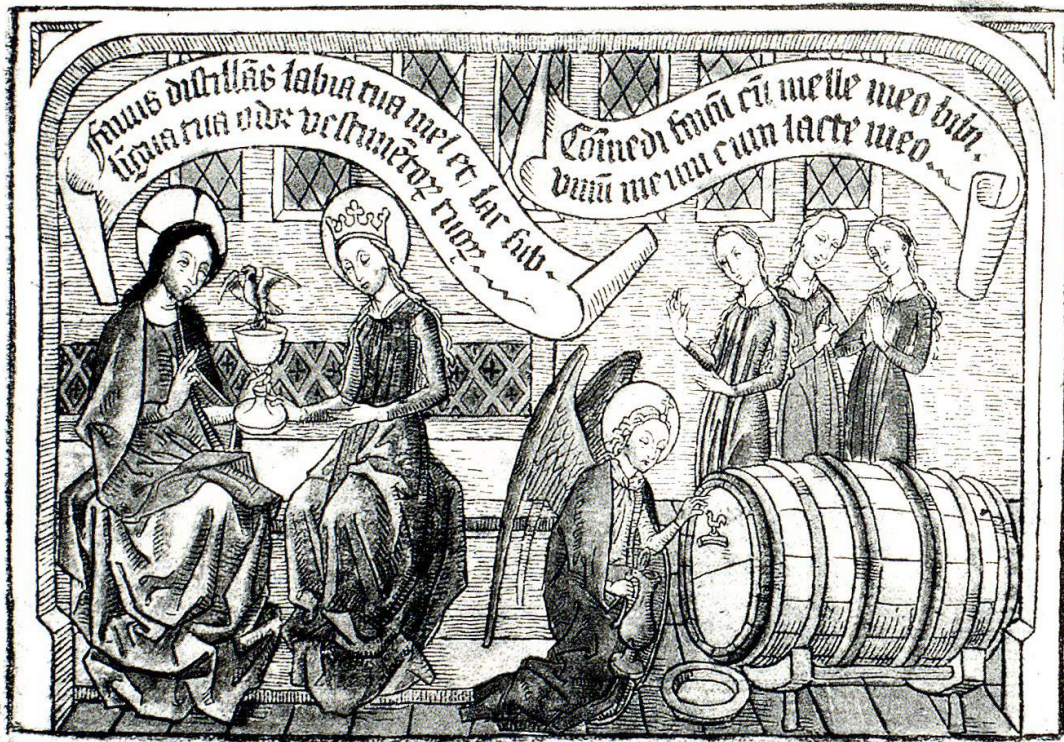 fauus distillās labia tua mel et lac sub.
ligua tua odor vestimētoꝝ tuoꝝ.
Cōmedi fauū cū melle meo bibi.
vinū meum cum lacte meo.